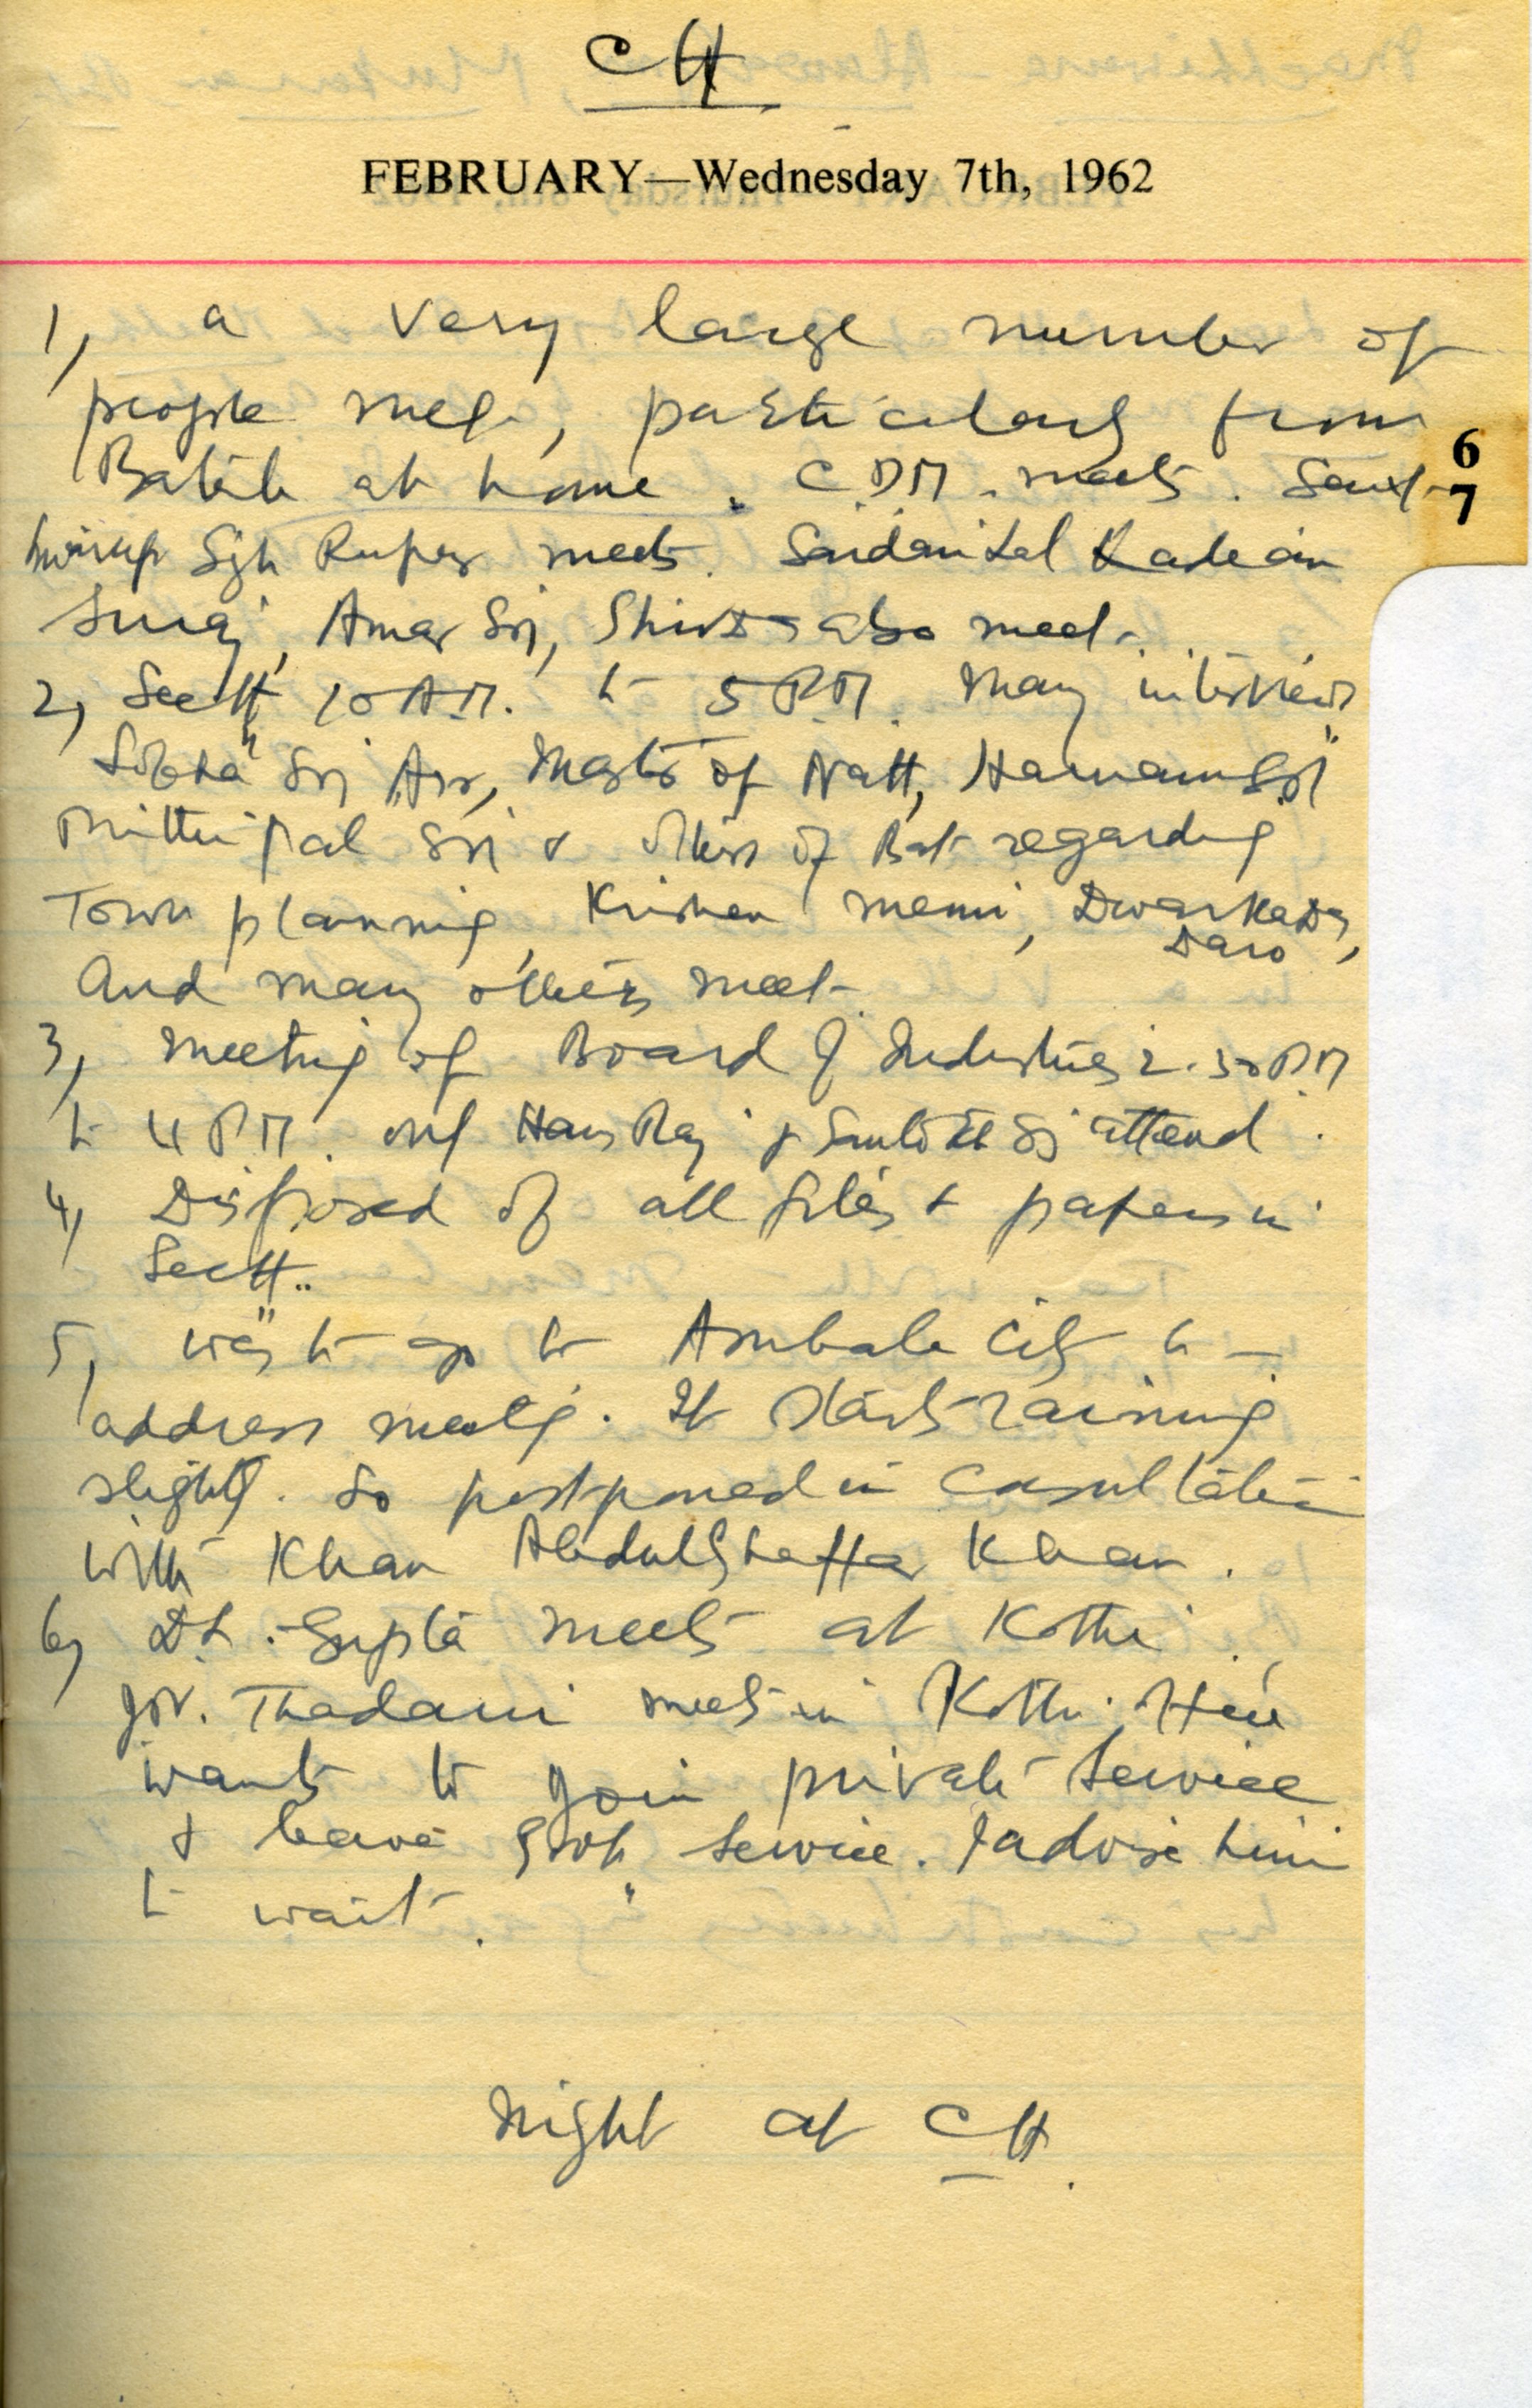 CH
FEBRUARY—Wednesday 7th, 1962
6
7
1, a very large number of
people meet, particularly from
Batala at home. C.D.M. meets. Sant
Singh Rupar meets.
Suraj, Amar Sgh, also meet.
2, Sectt 10 A.M. to 5 P.M. Many interviews
Sgh Asr, Master of Natt, Harnam Sgh
Prithipal Sgh & others of Bat regarding
Town planning, Krishen, Dwarka Das,
and many others meet.
3, Meeting of Board of Industries 2.30 P.M
to 4 P.M. Hans Raj & Santokh Sgh attend.
4, Disposed of all files & papers in
Sectt.
5, was to go to Ambala City to —
address meetg. It starts raining
slightly. So postponed in consultation
with Khan Abdul Ghaffar Khan.
6, D.L. Gupta meets at Kothi.
Thadani meets in Kothi. He
wants to join private service
& leave Govt service. I advise him
to wait.
Night at CH.